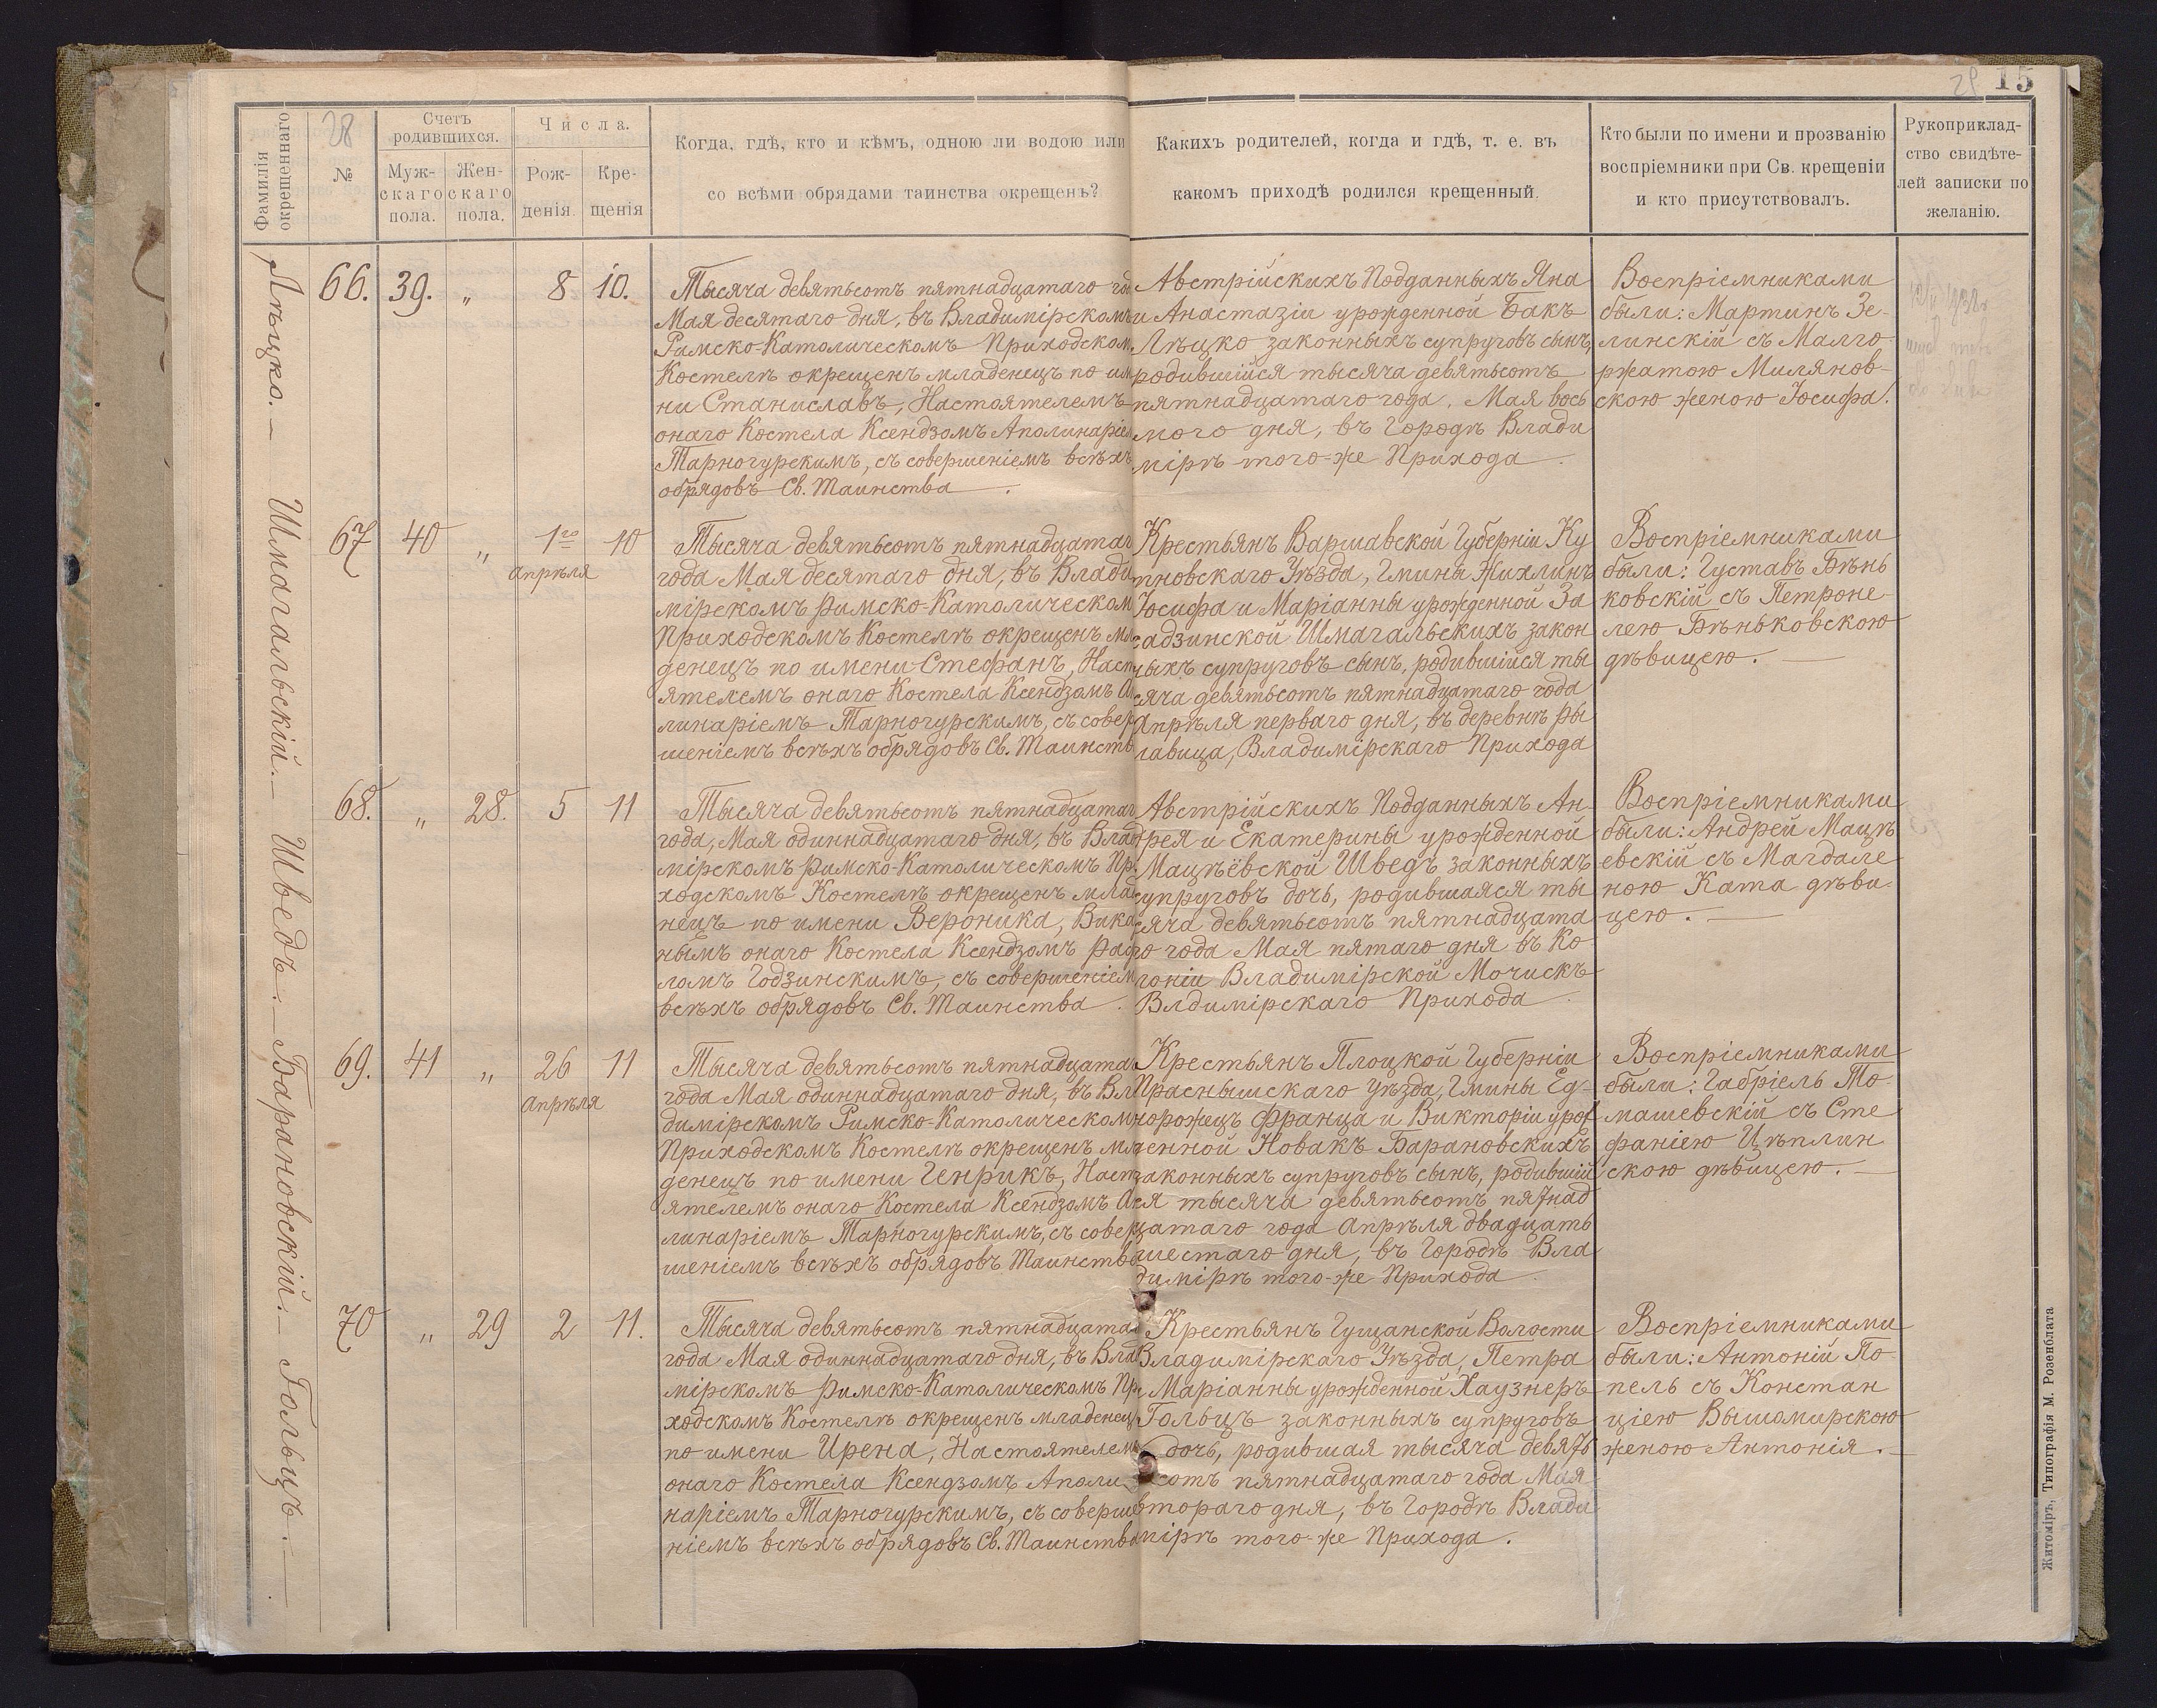 15
29
Фамилія окрещеннаго
28
№
Счетъ родившихся.
Муж-
скаго
пола.
Жен-
скаго
пола.
Числа.
Рож-
денія
Кре-
щенія
Когда, гдѣ, кто и кѣмъ, одною ли водою или
со всѣми обрядами таинства окрещенъ?
Какихъ родителей, когда и гдѣ, т. е. въ
какомъ приходѣ родился крещенный.
Кто были по имени и прозванію
воспріемники при Св. крещеніи
и кто присутствовалъ.
Рукоприклад-
ство свидѣте-
лей записки по
желанію.
Лѣцко.—
66. 39. „ 8 10.
Тысяча девятьсотъ пятнадцатаго го
Мая десятаго дня, въ Владимірскомъ
Римско-Католическомъ Приходском
Костелѣ окрещенъ младенецъ по им
ни Станиславъ, Настоятелемъ
онаго Костела Ксендзомъ Аполинаріем
Тарногурскимъ, съ совершеніемъ всѣхъ
обрядовъ Св. Таинства.
Австрійскихъ Подданныхъ Яна
и Анастазіи урожденной Бакъ
Лѣцко законныхъ супруговъ сынъ,
родившійся тысяча девятьсотъ
пятнадцатаго года, Мая вось
мого дня, въ Городѣ Влади
мірѣ того-же Прихода.
Воспріемниками
были: Мартинъ Зе-
линскій съ Малго-
ржатою Милянов-
скою женою Юсифа.
Шмагальскій.—
67 40 „ 1го 10
Апрѣля
Тысяча девятьсотъ пятнадцатаг
года Мая десятаго дня, въ Влади
мірскомъ Римско-Католическом
Приходскомъ Костелѣ окрещенъ мл
денецъ по имени Стефанъ, Наст
ятелемъ онаго Костела Ксендзомъ А
линаріемъ Тарногурскимъ, съ совер
шеніемъ всѣхъ обрядовъ Св. Таинств
Крестьянъ Варшавской Губерніи Ку
тновскаго Уѣзда, Гмины Жихлинъ
Юсифа и Маріанны урожденной За
садзинской Шмагальскихъ закон
ныхъ супруговъ сынъ, родившійся ты
сяча девятьсотъ пятнадцатаго года
Апрѣля перваго дня, въ деревнѣ Ры
лавица, Владимірскаго Прихода
Воспріемниками
были: Густавъ Бѣнь
ковскій съ Петроне-
лею Бѣньковскою
дѣвицею.—
Шведъ.—
68. „ 28. 5 11
Тысяча девятьсотъ пятнадцатаг
года, Мая одиннадцатаго дня, въ Влад
мірскомъ Римско-Католическомъ Пр
ходскомъ Костелѣ окрещенъ млад
нецъ по имени Вероника, Вика
нымъ онаго Костела Ксендзомъ Раф
ломъ Годзинскимъ, съ совершеніем
всѣхъ обрядовъ Св. Таинства.
Австрійскихъ Подданныхъ Ан-
дрея и Екатерины урожденной
Мацѣёвской Шведъ законныхъ
супруговъ дочь, родившаяся ты
сяча девятьсотъ пятнадцата
го года Мая пятаго дня въ Ко
лоніи Владимірской Мочискъ
Влдимірскаго Прихода.
Воспріемниками
были: Андрей Мацѣ
евскій съ Магдале
ною Ката дѣви-
цею.—
Барановскій.—
69. 41 „ 26 11
Апрѣля
Тысяча девятьсотъ пятнадцата
года Мая одиннадцатаго дня, въ Вл
димірскомъ Римско-Католическом
Приходскомъ Костелѣ окрещенъ мл
денецъ по имени Генрикъ, Наст
ятелемъ онаго Костела Ксендзомъ А
линаріемъ Тарногурскимъ, съ совер
шеніемъ всѣхъ обрядовъ Таинства
Крестьянъ Плоцкой Губерніи
Праснышскаго Уѣзда, Гмины Ед-
норожецъ Франца и Викторіи урож
денной Новакъ Барановскихъ
законныхъ супруговъ сынъ, родившій
ся тысяча девятьсотъ пятнад
цатаго года Апрѣля двадцать
шестаго дня, въ Городѣ Вла
димірѣ того-же Прихода.
Воспріемниками
были: Габріель То-
машевскій съ Сте
фаніею Цѣплин
скою дѣвицею.—
Гольцъ.—
70 „ 29 2 11.
Тысяча девятьсотъ пятнадцата
года Мая одиннадцатаго дня, въ Влад
мірскомъ Римско-Католическомъ Пр
ходскомъ Костелѣ окрещенъ младенец
по имени Ирена, Настоятелем
онаго Костела Ксендзомъ Аполи
наріемъ Тарногурскимъ, съ соверше
ніемъ всѣхъ обрядовъ Св. Таинства
Крестьянъ Гущанской Волости
Владимірскаго Уѣзда, Петра
Маріанны урожденной Хаузнеръ
Гольцъ законныхъ супруговъ
дочь, родившая тысяча девять
сотъ пятнадцатаго года Мая
втораго дня, въ Городѣ Влади
мірѣ того-же Прихода.
Воспріемниками
были: Антоній По-
пель съ Констан
ціею Вышомирскою
женою Антонія.—
Житоміръ, Типографія М. Розенблата